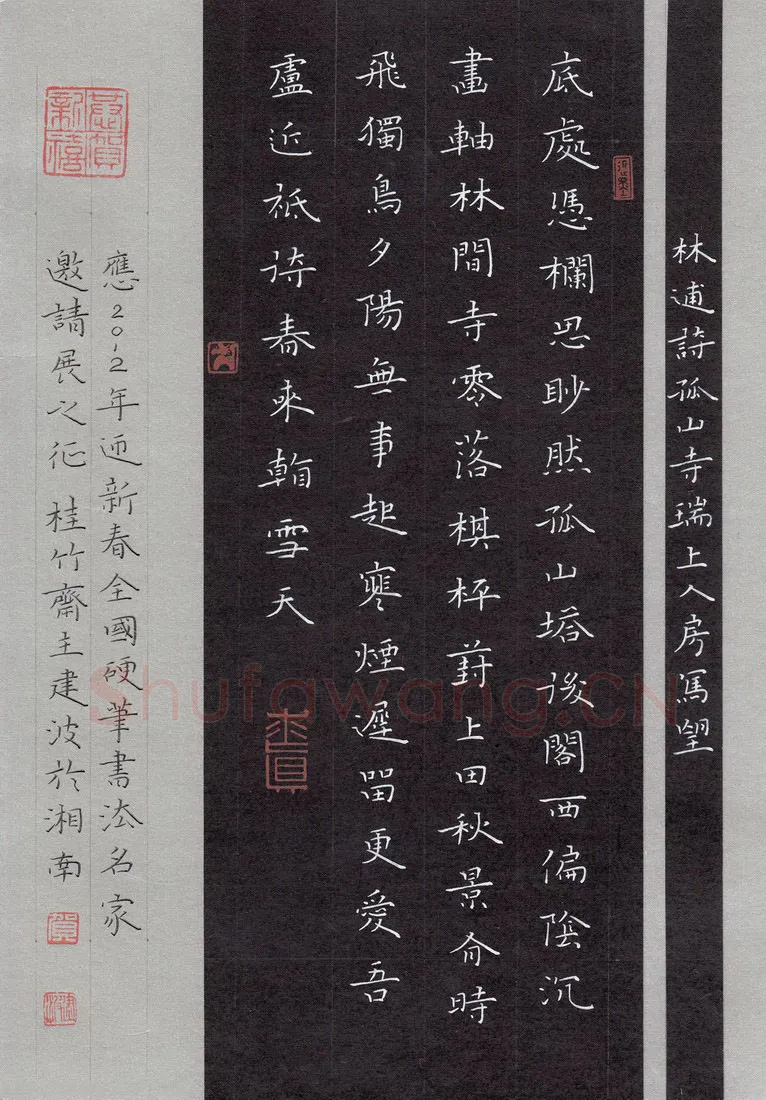 林逋詩孤山寺瑞上人房寫望
底處憑欄思眇然孤山塔後閣西偏陰沉
畫軸林間寺零落棋枰葑上田秋景有時
飛獨鳥夕陽無事起寒煙遲留更愛吾
廬近祇待春來看雪天
應2012年迎新春全國硬筆書法名家
邀請展之征 桂竹齋主建波於湘南
恭賀新禧
Shufawang.CN